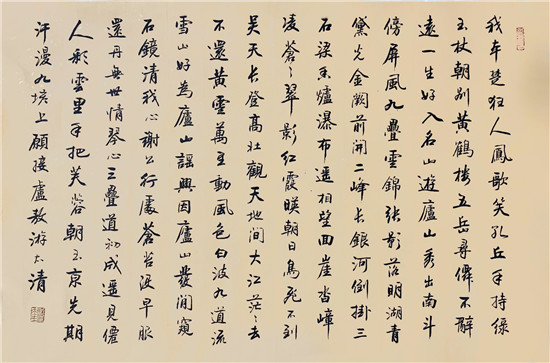 我本楚狂人鳳歌笑孔丘手持綠
玉杖朝別黃鶴樓五岳尋僊不辭
遠一生好入名山遊廬山秀出南斗
傍屏風九疊雲錦張影落明湖青
黛光金闕前開二峰長銀河倒掛三
石梁香爐瀑布遥相望回崖沓嶂
凌蒼〻翠影紅霞映朝日鳥飛不到
吳天長登高壯觀天地間大江茫〻去
不還黃雲萬里動風色白波九道流
雪山好為廬山謠興因廬山發閒窺
石鏡清我心謝公行處蒼苔沒早服
還丹無世情琴心三疊道初成遥見僊
人彩雲里手把芙蓉朝玉京先期
汗漫九垓上願接盧敖游太清